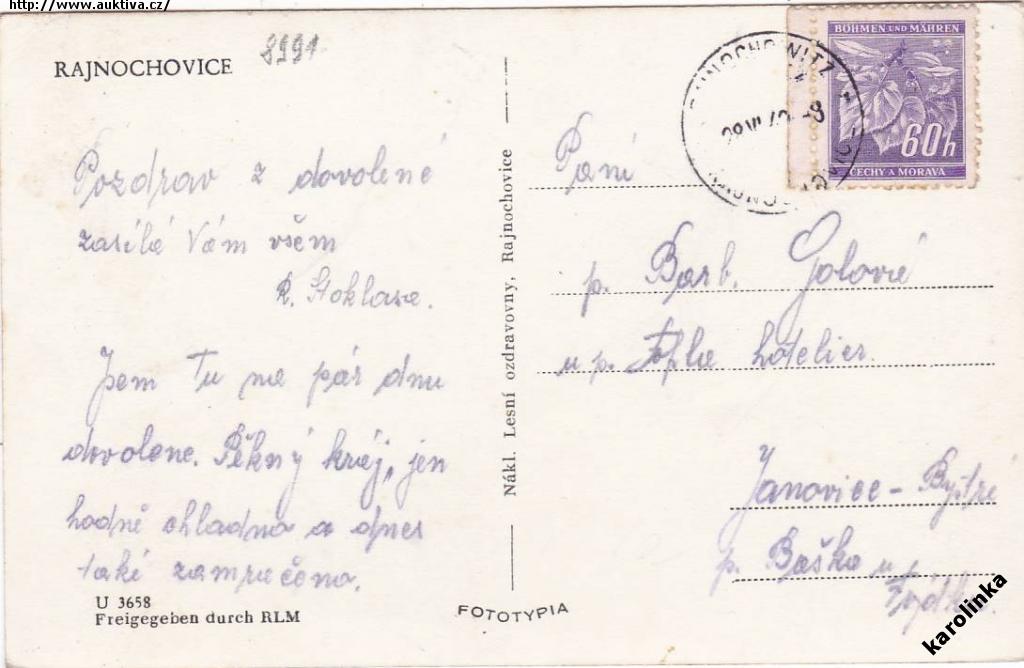 http://www.auktiva.cz/
RAJNOCHOVICE
8991
Pozdrav z dovolené
zasílá Vám všem
R. Stoklasa.
Jsem Tu na pár dnu
dovolene. Pěkný kraj, jen
hodně chladno a dnes
také zamračeno.
U 3658
Freigegeben durch RLM
FOTOTYPIA
Nákl. Lesní ozdravovny, Rajnochovice
BÖHMEN UND MÄHREN
60h
ČECHY A MORAVA
Paní
p. Barb. Golová
u p. hotelier.
Janovice - Bystré
p. Baška u
Frýdku.
karolinka